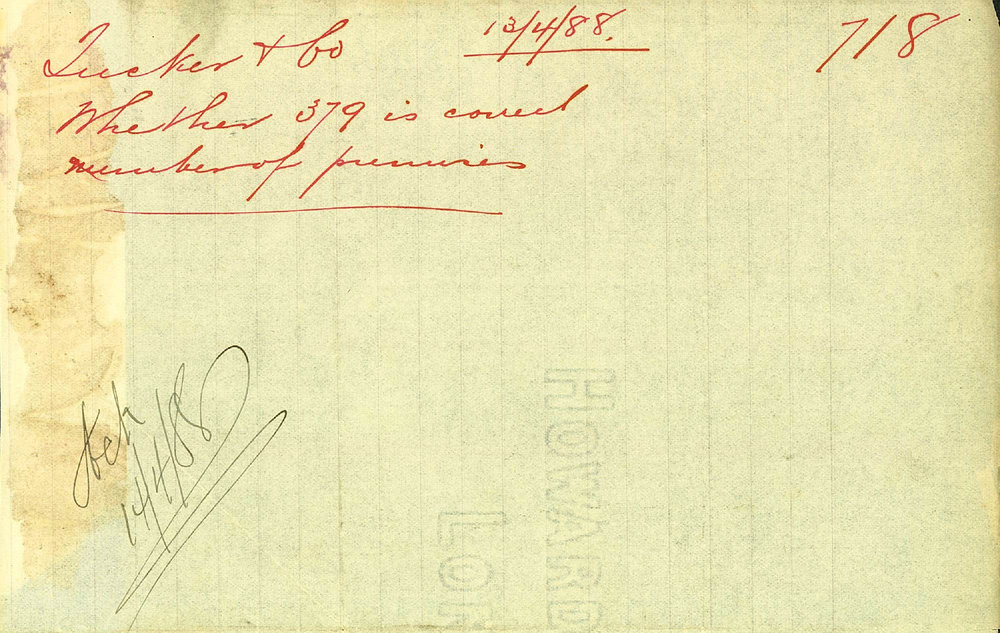 Tucker & Co 13/4/88. 718
Whether 379 is correct
number of premises
14/4/88
HOWARD
LO